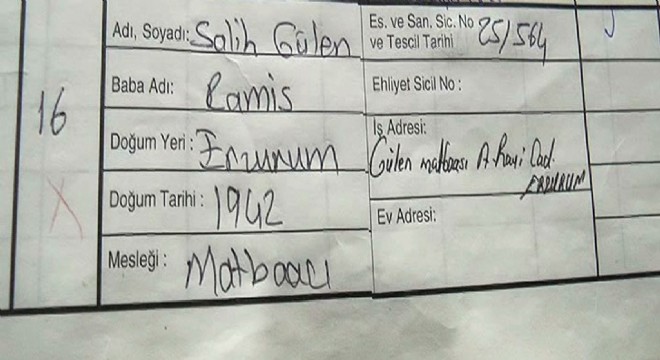 16
Adı, Soyadı: Salih Gülen
Baba Adı: Ramis
Doğum Yeri: Erzurum
Doğum Tarihi: 1942
Mesleği: Matbaacı
Es. ve San. Sic. No ve Tescil Tarihi 25/564
Ehliyet Sicil No:
İş Adresi:
Gülen matbaası A. Cad.
ERZURUM
Ev Adresi: